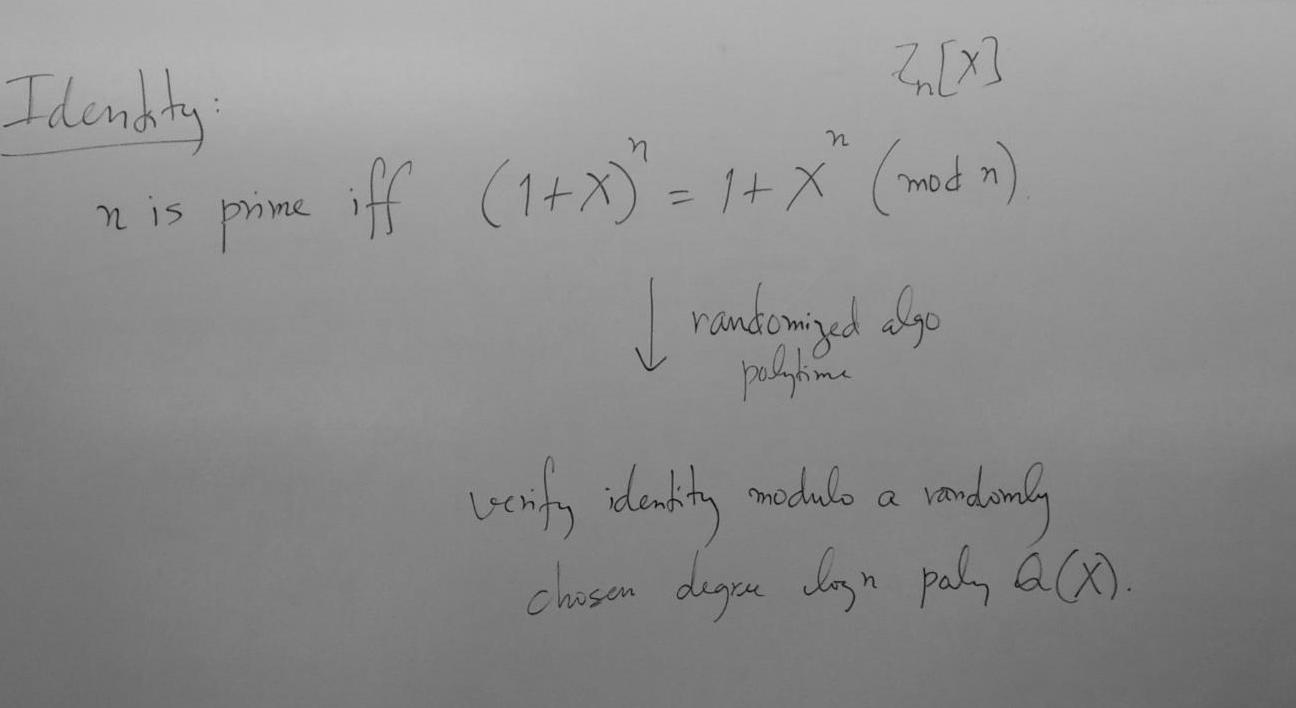 Z_n[X]
Identity:
n is prime iff (1+X)^n = 1 + X^n (mod n).
↓ randomized algo
polytime
verify identity modulo a randomly
chosen degree log n poly Q(X).